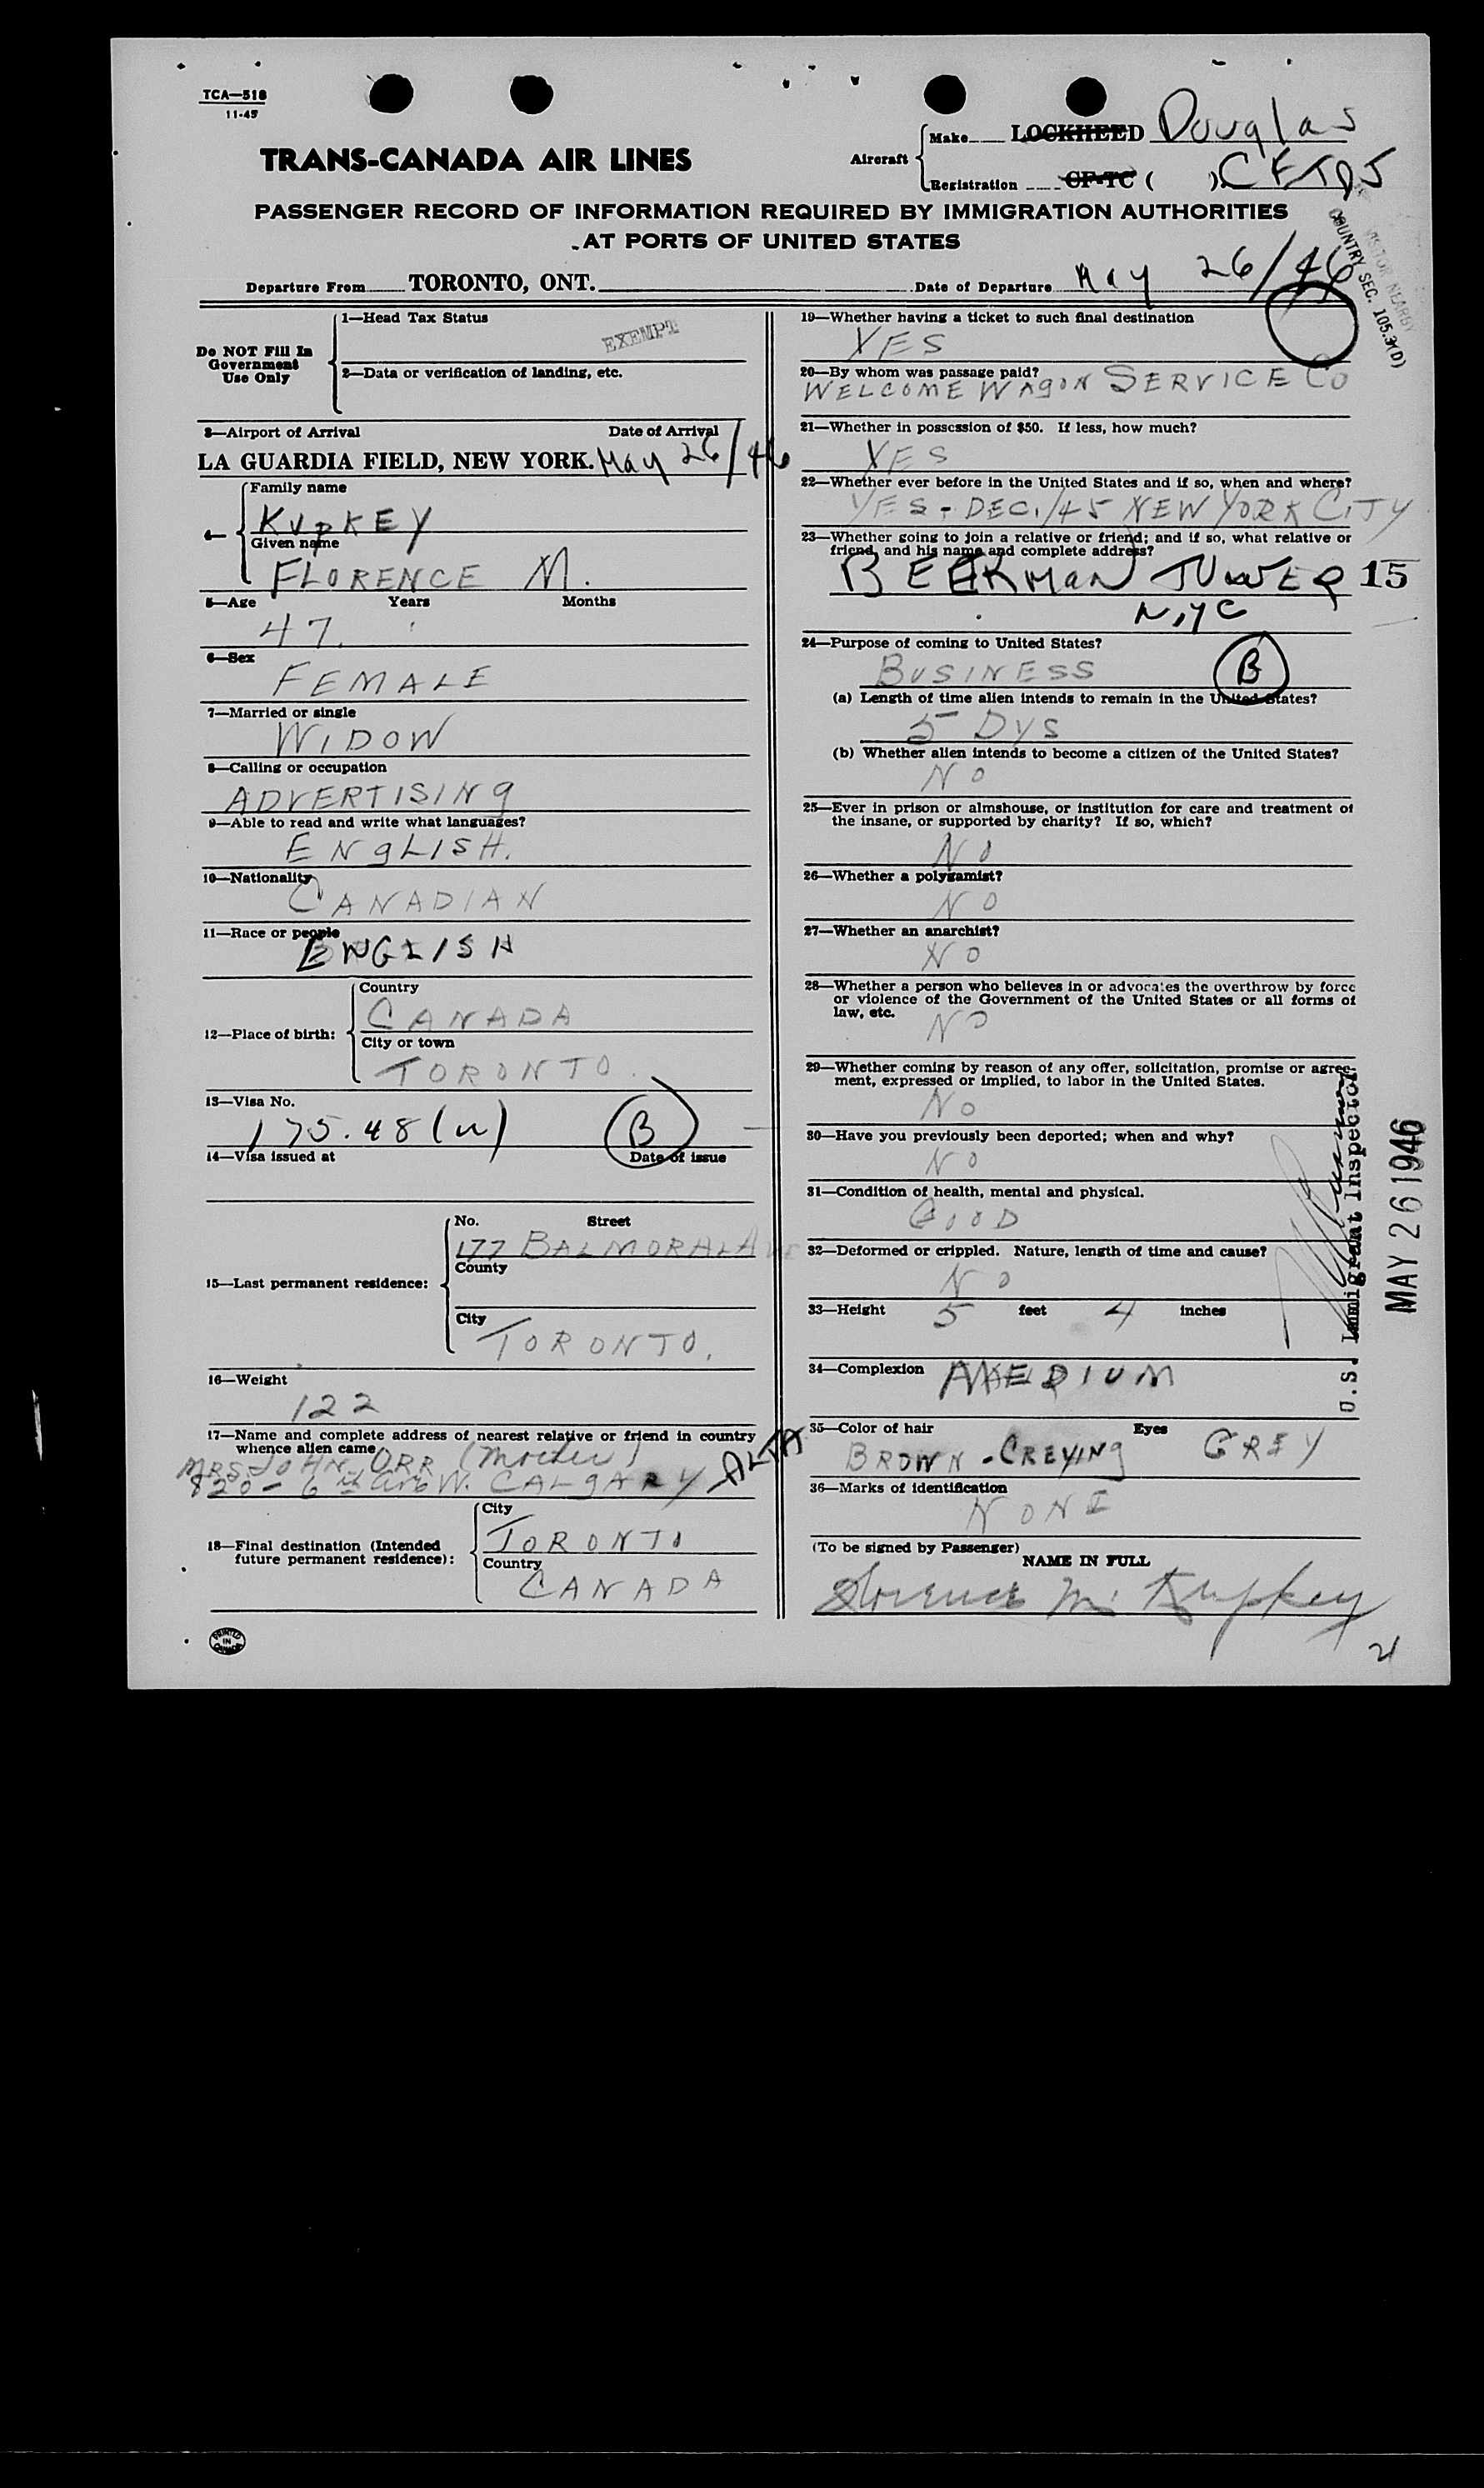 TCA—518
11-45
TRANS-CANADA AIR LINES
Aircraft
Make LOCKHEED Douglas
Registration CF-TC ( ) CFTDJ
PASSENGER RECORD OF INFORMATION REQUIRED BY IMMIGRATION AUTHORITIES
AT PORTS OF UNITED STATES
VISITOR NEARBY
COUNTRY SEC. 105.3(D)
Departure From TORONTO, ONT. Date of Departure May 26/46
Do NOT Fill In
Government
Use Only
1—Head Tax Status
EXEMPT
2—Data or verification of landing, etc.
3—Airport of Arrival Date of Arrival
LA GUARDIA FIELD, NEW YORK. May 26/46
4—
Family name
KUPKEY
Given name
FLORENCE M.
5—Age Years Months
47.
6—Sex
FEMALE
7—Married or single
WIDOW
8—Calling or occupation
ADVERTISING
9—Able to read and write what languages?
ENGLISH.
10—Nationality
CANADIAN
11—Race or people
ENGLISH
12—Place of birth:
Country
CANADA
City or town
TORONTO.
13—Visa No.
175.48(w) B
14—Visa issued at Date of issue
15—Last permanent residence:
No. Street
177 BALMORAL AVE
County
City
TORONTO.
16—Weight
122
17—Name and complete address of nearest relative or friend in country
whence alien came
MRS JOHN ORR (Mother)
820 - 6th Ave W. CALGARY ALTA
18—Final destination (Intended
future permanent residence):
City
TORONTO
Country
CANADA
PRINTED
IN
CANADA
19—Whether having a ticket to such final destination
YES
20—By whom was passage paid?
WELCOME WAGON SERVICE CO
21—Whether in possession of $50. If less, how much?
YES
22—Whether ever before in the United States and if so, when and where?
YES - DEC./45 NEW YORK CITY
23—Whether going to join a relative or friend; and if so, what relative or
friend, and his name and complete address?
BEEKMAN TOWER 15
N.Y.C
24—Purpose of coming to United States?
BUSINESS B
(a) Length of time alien intends to remain in the United States?
5 DYS
(b) Whether alien intends to become a citizen of the United States?
NO
25—Ever in prison or almshouse, or institution for care and treatment of
the insane, or supported by charity? If so, which?
NO
26—Whether a polygamist?
NO
27—Whether an anarchist?
NO
28—Whether a person who believes in or advocates the overthrow by force
or violence of the Government of the United States or all forms of
law, etc.
NO
29—Whether coming by reason of any offer, solicitation, promise or agree-
ment, expressed or implied, to labor in the United States.
NO
30—Have you previously been deported; when and why?
NO
31—Condition of health, mental and physical.
GOOD
32—Deformed or crippled. Nature, length of time and cause?
NO
33—Height 5 feet 4 inches
34—Complexion MEDIUM
35—Color of hair Eyes
BROWN - GREYING GREY
36—Marks of identification
NONE
(To be signed by Passenger)
NAME IN FULL
Florence M. Kupkey
U.S. Immigrant Inspector
MAY 26 1946
21